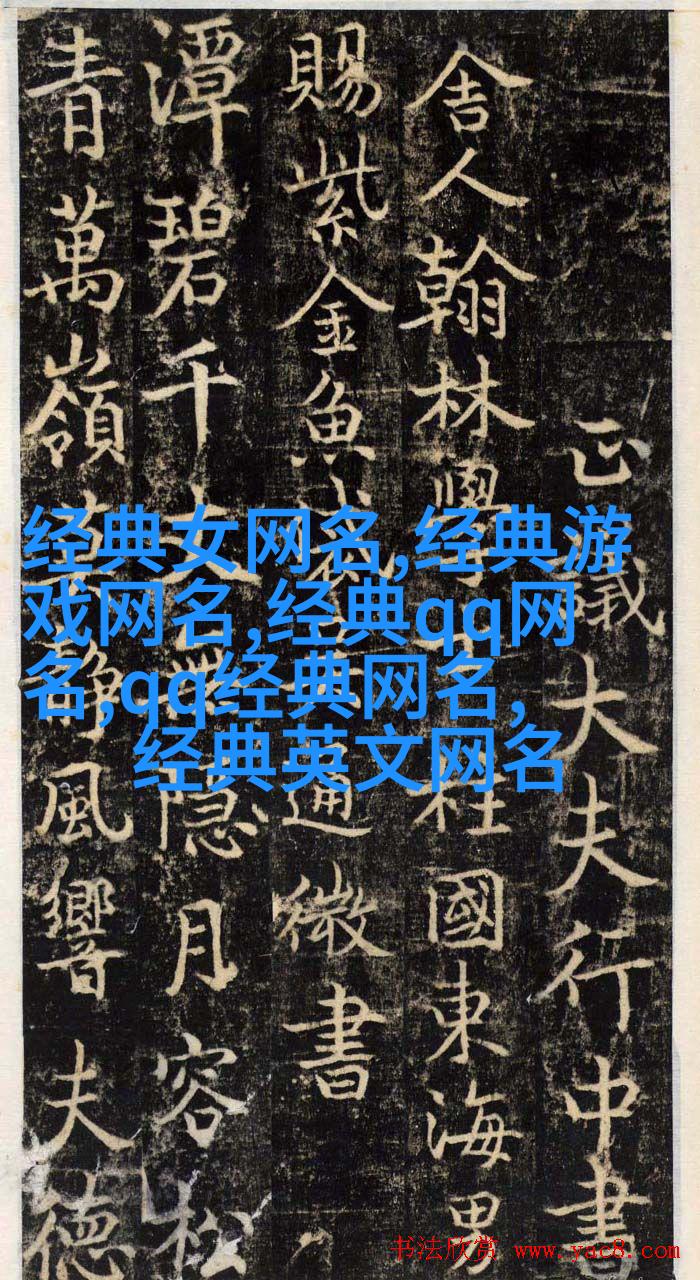 正議大夫行中書
舍人翰林學柱國東海男
賜紫金魚通微書
潭碧千丈隱月容松
青萬嶺靜風響夫德
经典女网名,经典游
戏网名,经典qq网
名,qq经典网名,
经典英文网名
书法欣赏 www.yac8.com